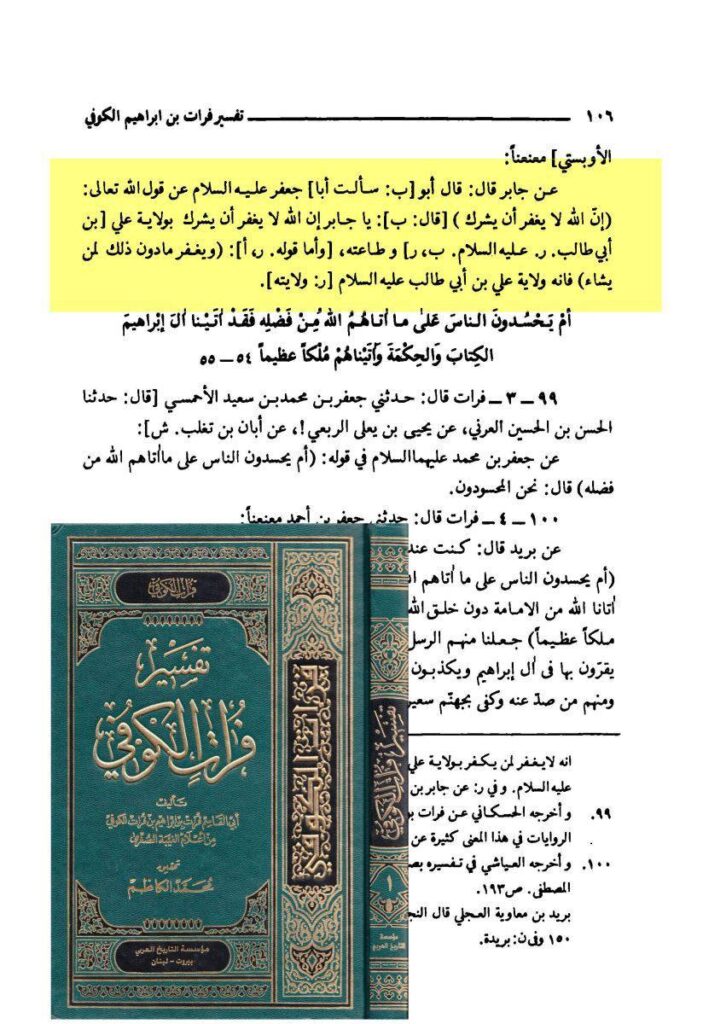 ١٠٦ ــــــــ تفسير فرات بن ابراهيم الكوفي
الأوبستي] معنعناً:
عن جابر قال: قال أبو [ب: سألت أبا] جعفر عليه السلام عن قول الله تعالى:
(إنّ الله لا يغفر أن يشرك) [قال: ب]: يا جابر إن الله لا يغفر أن يشرك بولاية علي [بن
أبي طالب. ر. عليه السلام. ب، ر] وطاعته، [وأما قوله. ر، أ]: (ويغفر مادون ذلك لمن
يشاء) فانه ولاية علي بن أبي طالب عليه السلام [ر: ولايته].
أمْ يَحْسُدونَ الناسَ عَلىٰ ما أتاهُمُ الله مِنْ فَضْلِه فَقَدْ أتَيْنا ألَ إبْراهيمَ
الكِتابَ وَالحِكْمَةَ وَأتَيْناهُمْ مُلْكاً عظيماً ٥٤ ــ ٥٥
٩٩ ــ ٣ ــ فرات قال: حدثني جعفربن محمدبن سعيد الأحمسي [قال: حدثنا
الحسن بن الحسين العرني، عن يحيى بن يعلى الربعي!، عن أبان بن تغلب. ش]:
عن جعفربن محمد عليهماالسلام في قوله: (أم يحسدون الناس على ماأتاهم الله من
فضله) قال: نحن المحسودون.
١٠٠ ــ ٤ ــ فرات قال: حدثني جعفربن أحمد معنعناً:
عن بريد قال: كنت عند
(أم يحسدون الناس على ما أتاهم
أتانا الله من الامامة دون خلق الله
ملكاً عظيماً) جعلنا منهم الرسل
يقرّون بها في أل إبراهيم ويكذبون
ومنهم من صدّ عنه وكفى بجهنّم سعير
انه لايغفر لمن يكفر بولاية علي
عليه السلام. وفي ر: عن جابر بن
٩٩. وأخرجه الحسكاني عن فرات
الروايات في هذا المعنى كثيرة عن
١٠٠. وأخرجه العياشي في تفسيره
المصطفى. ص١٩٣.
بريد بن معاوية العجلي قال
١٥٠ وفي ن: بريدة.
فرات الكوفي
تفسير
فرات الكوفي
تأليف
أبي القاسم فرات بن إبراهيم بن فرات الكوفي
من أعلام الغيبة الصغرى
تحقيق
محمد الكاظم
مؤسسة التاريخ العربي
بيروت - لبنان
تفسير فرات الكوفي
١
مؤسسة
التاريخ العربي